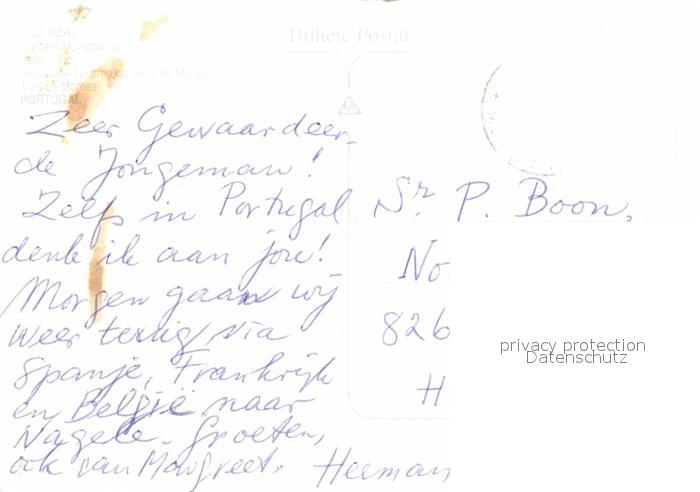 VILA REAL
Bilhete Postal
Região de Turismo da Serra do Marão
Trás-os-Montes
PORTUGAL
Zeer Gewaardeer-
de Jongeman!
Zelfs in Portugal
denk ik aan jou!
Morgen gaan wij
weer terug via
Spanje, Frankrijk
en België naar
Nagele. Groeten,
ook van Margreet. Herman
Sr. P. Boon,
No
826
H
privacy protection
Datenschutz